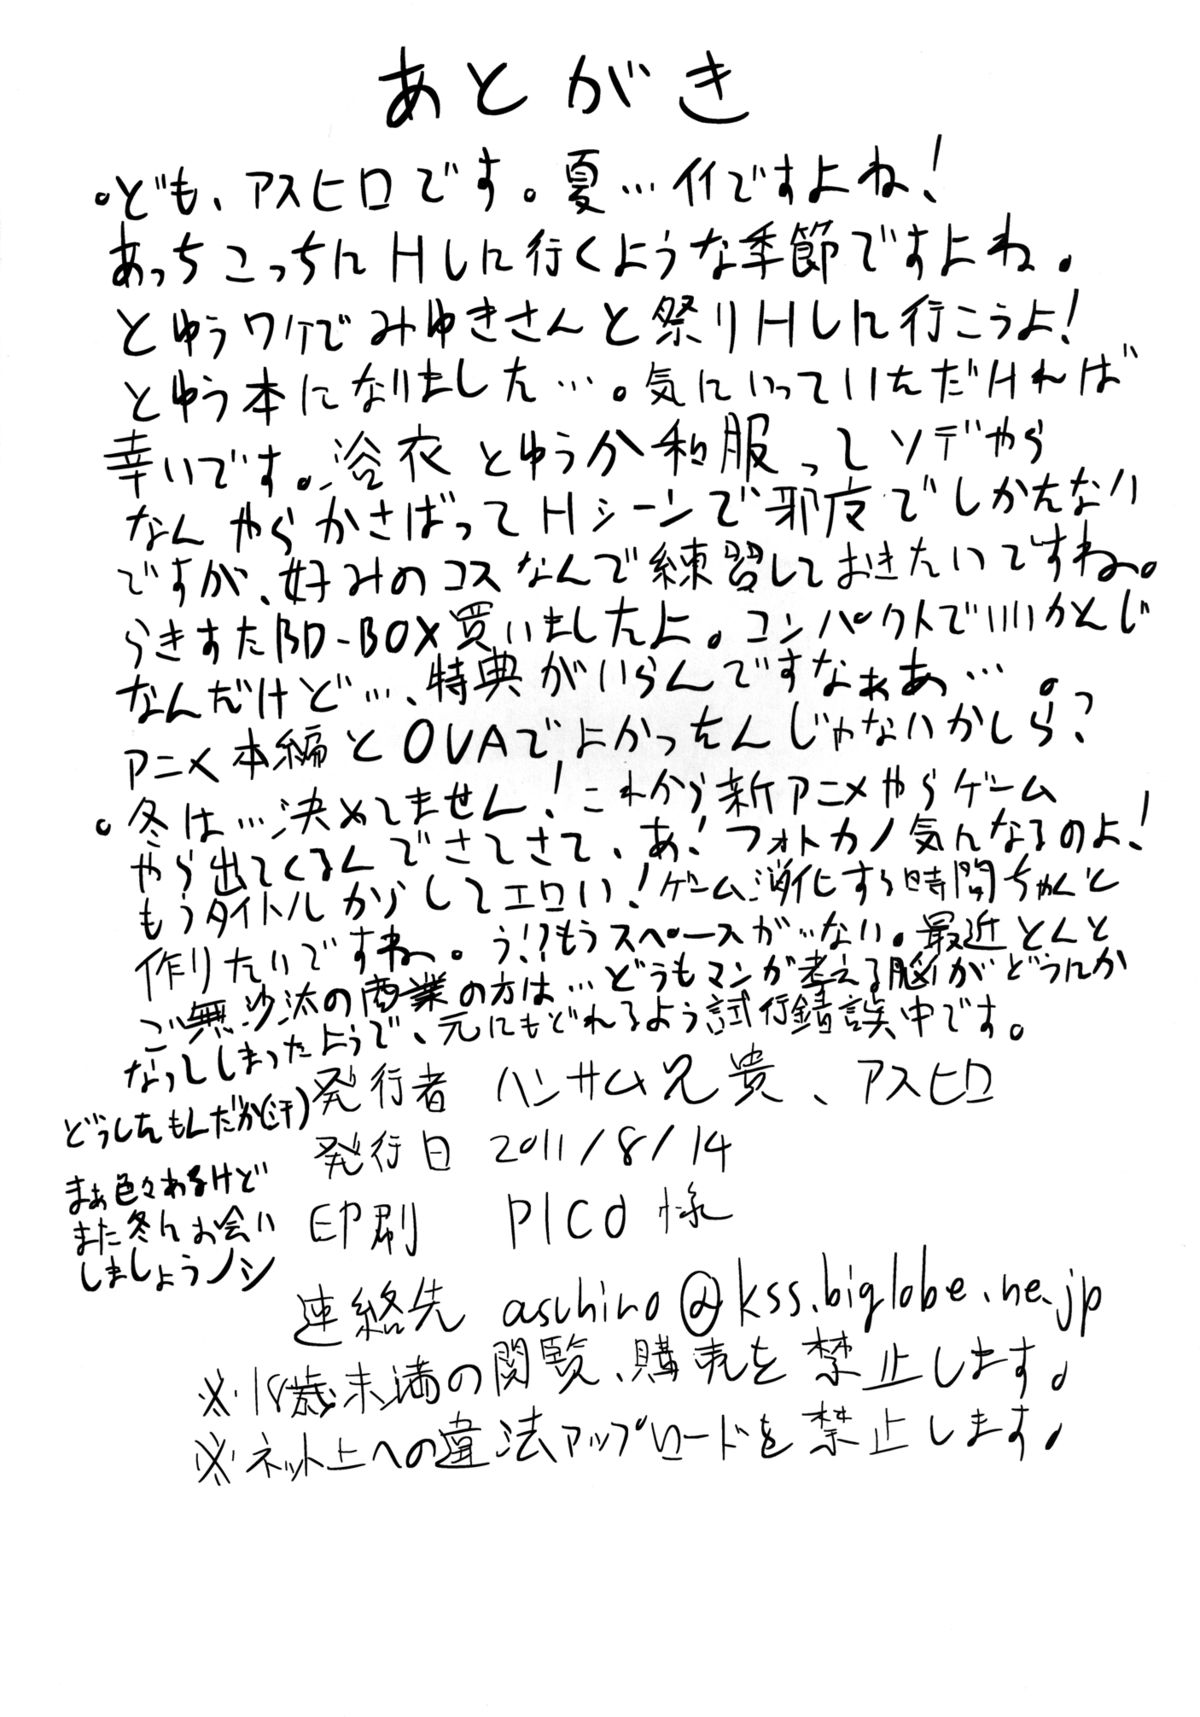 あとがき
。ども、アスヒロです。夏…イイですよね!
あっちこっちにHしに行くような季節ですよね。
とゆうワケでみゆきさんと祭りHしに行こうよ!
とゆう本になりました…。気にいっていただければ
幸いです。浴衣とゆうか和服ってソデやら
なんやらかさばってHシーンで邪魔でしかたない
ですが、好みのコスなんで練習しておきたいですね。
らきすたBD-BOX買いましたよ。コンパクトでいいかんじ
なんだけど…、特典がいらんですなぁあ…。
アニメ本編とOVAでよかったんじゃないかしら?
。冬は…決めてません!これから新アニメやらゲーム
やら出てくるんでさてさて、あ!フォトカノ気んなるのよ!
もうタイトルからしてエロい!ゲーム消化する時間ちゃんと
作りたいですね。う!?もうスペースが…ない。最近とんと
ご無沙汰の商業の方は…どうもマンガ考える脳がどうにか
なってしまったようで、元にもどれるよう試行錯誤中です。
どうしたもんだか(汗)
まぁ色々あるけど
また冬にお会い
しましょうノシ
発行者 ハンサム兄貴、アスヒロ
発行日 2011/8/14
印刷 PICO様
連絡先 asuhiro@kss.biglobe.ne.jp
※18歳未満の閲覧、購売を禁止します。
※ネット上への違法アップロードを禁止します。